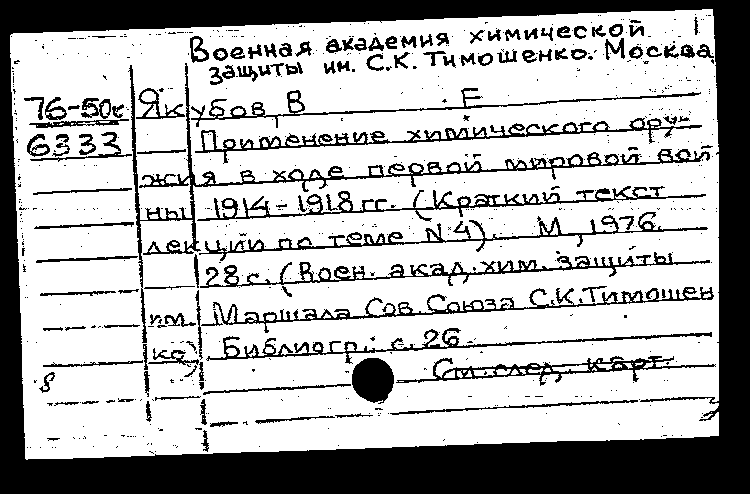 Военная академия химической
защиты им. С.К. Тимошенко. Москва
76-50с Якубов, В. Е
6333 Применение химического ору-
жия в ходе первой мировой вой
ны 1914-1918 гг. (Краткий текст
лекции по теме N 4). М, 1976.
28 с. (Воен. акад. хим. защиты
им. Маршала Сов. Союза С.К. Тимошен
ко) Библиогр.: с. 26.
См. след. карт.
8